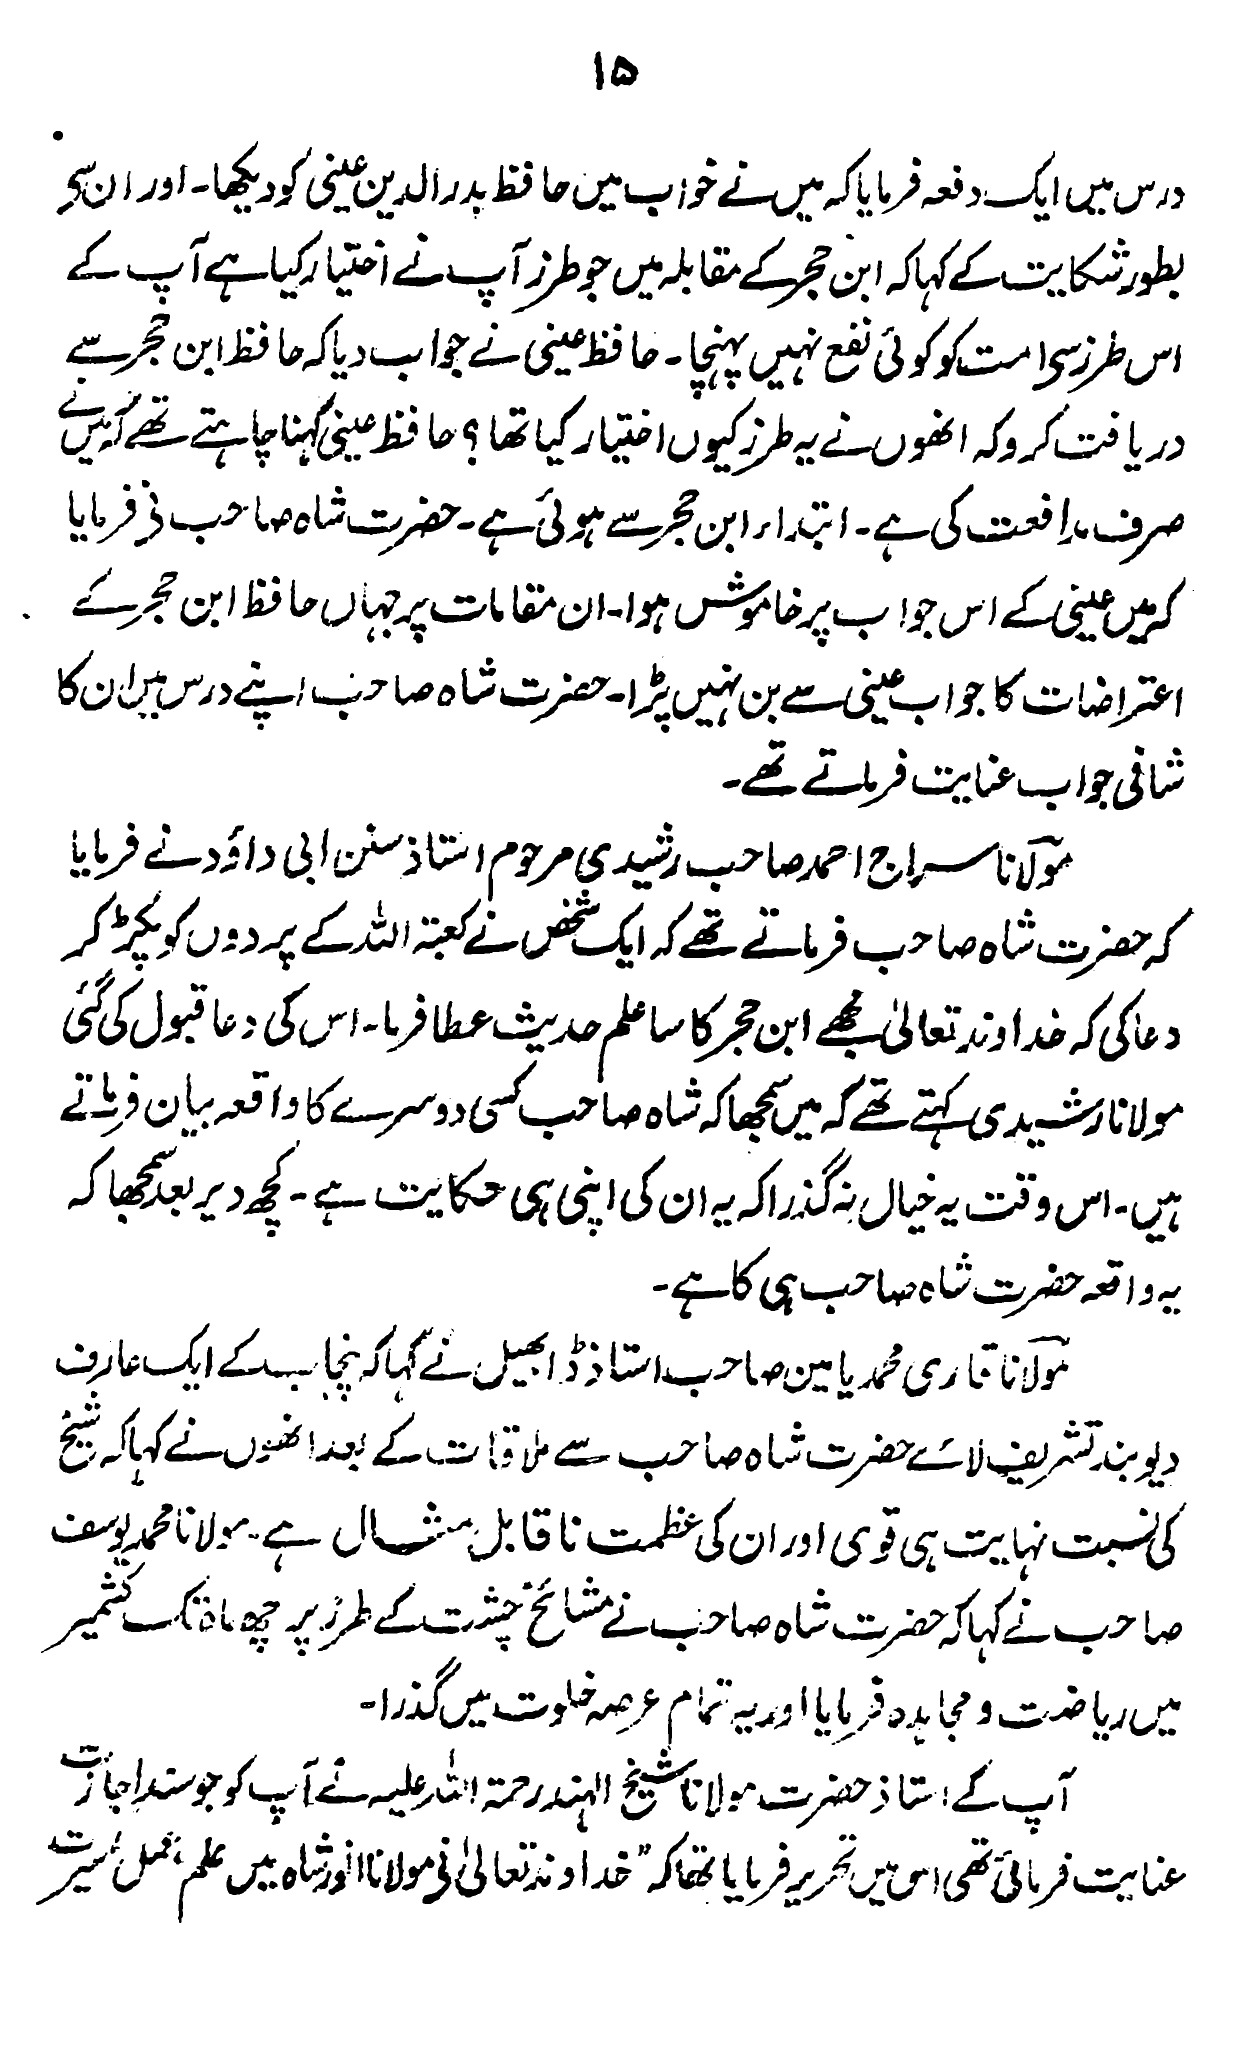 ۱۵
درس میں ایک دفعہ فرمایا کہ میں نے خواب میں حافظ بدر الدین عینی کو دیکھا۔ اور ان سے
بطور شکایت کے کہا کہ ابن حجر کے مقابلہ میں جو طرز آپ نے اختیار کیا ہے آپ کے
اس طرز سے امت کو کوئی نفع نہیں پہنچا۔ حافظ عینی نے جواب دیا کہ حافظ ابن حجر سے
دریافت کرو کہ انھوں نے یہ طرز کیوں اختیار کیا تھا؟ حافظ عینی کہنا چاہتے تھے کہ میں نے
صرف مدافعت کی ہے۔ ابتداء ابن حجر سے ہوئی ہے۔ حضرت شاہ صاحب نے فرمایا
کہ میں عینی کے اس جواب پر خاموش ہوا۔ ان مقامات پر جہاں حافظ ابن حجر کے
اعتراضات کا جواب عینی سے بن نہیں پڑا۔ حضرت شاہ صاحب اپنے درس میں ان کا
شافی جواب عنایت فرماتے تھے۔
مولانا سراج احمد صاحب رشیدی مرحوم استاذ سنن ابی داؤد نے فرمایا
کہ حضرت شاہ صاحب فرماتے تھے کہ ایک شخص نے کعبتہ اللہ کے پردوں کو پکڑ کر
دعا کی کہ خداوند تعالیٰ مجھے ابن حجر کا سا علم حدیث عطا فرما۔ اس کی دعا قبول کی گئی
مولانا رشیدی کہتے تھے کہ میں سمجھا کہ شاہ صاحب کسی دوسرے کا واقعہ بیان فرماتے
ہیں۔ اس وقت یہ خیال نہ گذرا کہ یہ ان کی اپنی ہی حکایت ہے۔ کچھ دیر بعد سمجھا کہ
یہ واقعہ حضرت شاہ صاحب ہی کا ہے۔
مولانا قاری محمد یامین صاحب استاذ ڈابھیل نے کہا کہ پنجاب کے ایک عارف
دیوبند تشریف لائے حضرت شاہ صاحب سے ملاقات کے بعد انھوں نے کہا کہ شیخ
کی نسبت نہایت ہی قوی اور ان کی عظمت ناقابل مثال ہے۔ مولانا محمد یوسف
صاحب نے کہا کہ حضرت شاہ صاحب نے مشائخ چشت کے طرز پر چھ ماہ تک کشمیر
میں ریاضت و مجاہدہ فرمایا اور یہ تمام عرصہ خلوت میں گذرا۔
آپ کے استاذ حضرت مولانا شیخ الہند رحمۃ اللہ علیہ نے آپ کو جو سند اجازت
عنایت فرمائی تھی اس میں تحریر فرمایا تھا کہ "خداوند تعالیٰ نے مولانا انور شاہ میں علم، عمل، سیرت